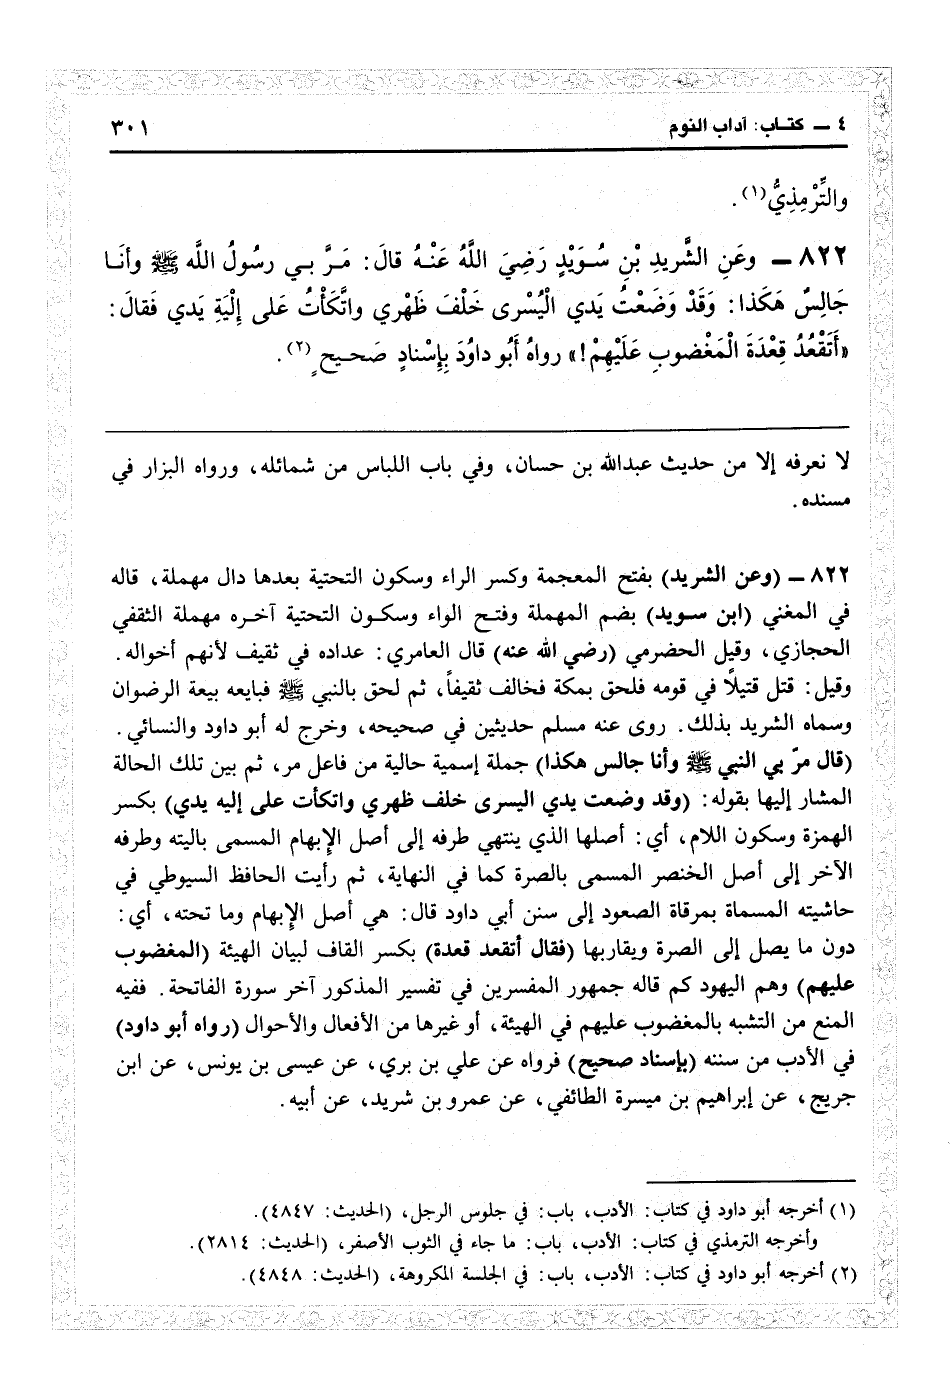 ٤ ــ كتـاب: آداب النوم
٣٠١
والتِّرْمِذِيُّ(١).
٨٢٢ ــ وعَنِ الشَّرِيدِ بْنِ سُـوَيْدٍ رَضِيَ اللَّهُ عَنْـهُ قالَ: مَـرَّ بـي رسُولُ اللَّه ﷺ وأنَـا
جَالِسٌ هَكَذا: وَقَدْ وَضَعْتُ يَدي الْيُسْرى خَلْفَ ظَهْري واتَّكَأْتُ عَلى إلْيَةِ يَدي فَقالَ:
«أَتَقْعُدُ قِعْدَةَ الْمَغْضوبِ عَلَيْهِمْ!» رواهُ أَبُو داوُدَ بِإسْنادٍ صَحـيحٍ(٢).
لا نعرفه إلا من حديث عبدالله بن حسان، وفي باب اللباس من شمائله، ورواه البزار في
مسنده.
٨٢٢ ــ (وعن الشريد) بفتح المعجمة وكسر الراء وسكون التحتية بعدها دال مهملة، قاله
في المغني (ابن سـويد) بضم المهملة وفتـح الواء وسكـون التحتية آخـره مهملة الثقفي
الحجازي، وقيل الحضرمي (رضي الله عنه) قال العامري: عداده في ثقيف لأنهم أخواله.
وقيل: قتل قتيلاً في قومه فلحق بمكة فخالف ثقيفاً، ثم لحق بالنبي ﷺ فبايعه بيعة الرضوان
وسماه الشريد بذلك. روى عنه مسلم حديثين في صحيحه، وخرج له أبو داود والنسائي.
(قال مرّ بي النبي ﷺ وأنا جالس هكذا) جملة إسمية حالية من فاعل مر، ثم بين تلك الحالة
المشار إليها بقوله: (وقد وضعت يدي اليسرى خلف ظهري واتكأت على إليه يدي) بكسر
الهمزة وسكون اللام، أي: أصلها الذي ينتهي طرفه إلى أصل الإبهام المسمى باليته وطرفه
الآخر إلى أصل الخنصر المسمى بالصرة كما في النهاية، ثم رأيت الحافظ السيوطي في
حاشيته المسماة بمرقاة الصعود إلى سنن أبي داود قال: هي أصل الإبهام وما تحته، أي:
دون ما يصل إلى الصرة ويقاربها (فقال أتقعد قعدة) بكسر القاف لبيان الهيئة (المغضوب
عليهم) وهم اليهود كم قاله جمهور المفسرين في تفسير المذكور آخر سورة الفاتحة. ففيه
المنع من التشبه بالمغضوب عليهم في الهيئة، أو غيرها من الأفعال والأحوال (رواه أبو داود)
في الأدب من سننه (بإسناد صحيح) فرواه عن علي بن بري، عن عيسى بن يونس، عن ابن
جريج، عن إبراهيم بن ميسرة الطائفي، عن عمرو بن شريد، عن أبيه.
(١) أخرجه أبو داود في كتاب: الأدب، باب: في جلوس الرجل، (الحديث: ٤٨٤٧).
وأخرجه الترمذي في كتاب: الأدب، باب: ما جاء في الثوب الأصفر، (الحديث: ٢٨١٤).
(٢) أخرجه أبو داود في كتاب: الأدب، باب: في الجلسة المكروهة، (الحديث: ٤٨٤٨).